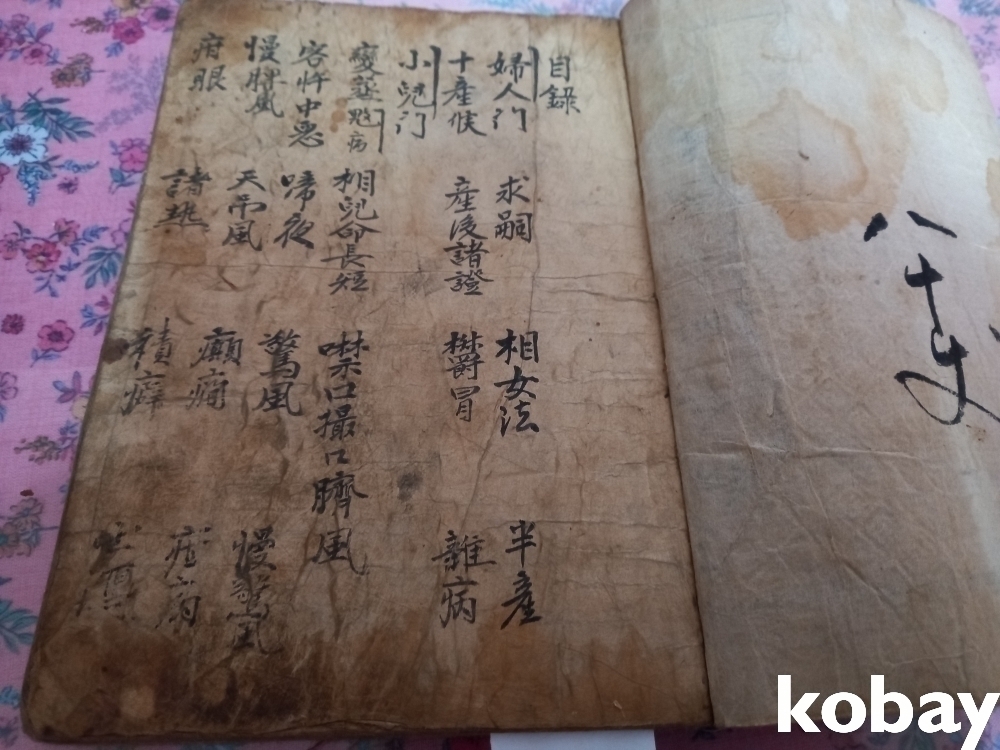 目錄
婦人门 求嗣 相女法 半產
十產候 產後諸證 欝冒 雜病
小兒门
變蒸 鬾病 相兒命長短 噤口撮口臍風
客忤中惡 啼夜 驚風 慢驚風
慢脾風 天吊風 癲癎
疳眼 諸熱 積癖
八十
kobay